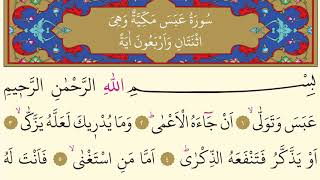 سُورَةُ عَبَسَ مَكِّيَّةٌ وَهِيَ
اثْنَتَانِ وَاَرْبَعُونَ اٰيَةً
بِسْــــمِ اللّٰهِ الرَّحْمٰنِ الرَّح۪يمِ
عَبَسَ وَتَوَلّٰىۙ ﴿١﴾ اَنْ جَٓاءَهُ الْاَعْمٰىۜ ﴿٢﴾ وَمَا يُدْر۪يكَ لَعَلَّهُ يَزَّكّٰىۙ ﴿٣﴾
اَوْ يَذَّكَّرُ فَتَنْفَعَهُ الذِّكْرٰىۜ ﴿٤﴾ اَمَّا مَنِ اسْتَغْنٰىۙ ﴿٥﴾ فَاَنْتَ لَهُ